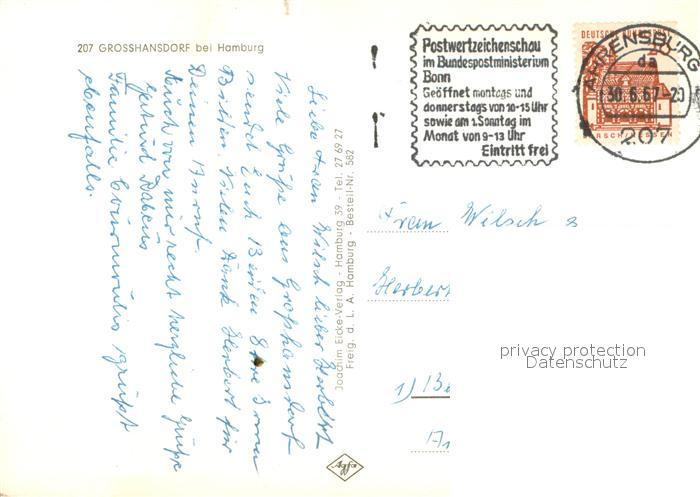 207 GROSSHANSDORF bei Hamburg
Postwertzeichenschau
im Bundespostministerium
Bonn
Geöffnet montags und
donnerstags von 10-15 Uhr
sowie am 1. Sonntag im
Monat von 9-13 Uhr
Eintritt frei
DEUTSCHE
AHRENSBURG
da
30.6.67-20
207
Liebe Frau Wilsch lieber Herbert
Viele Grüße aus Großhansdorf
sendet Euch Beiden
Vielen Dank Herbert für
Deinen
Auch von mir recht herzliche Grüße
Familie grüßt
ebenfalls.
Joachim Eicke-Verlag - Hamburg 39 - Tel. 27 69 27
Freig. d. L. A. Hamburg - Bestell-Nr. 582
Frau Wilsch &
Herbert
1)
Agfa
privacy protection
Datenschutz